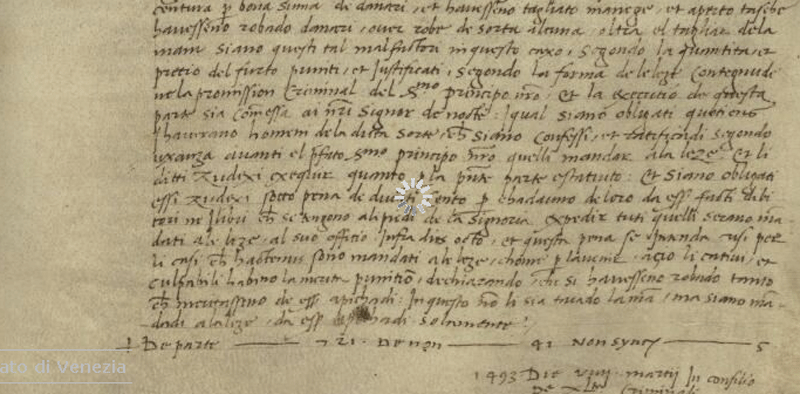 centura per bona suma de danari, et havesseno tagliato manege, et aperto tasche
havesseno robado danari, over robe de sorta alcuna, oltra el tagliar dela
man siano questi tal malfactori in questo caxo, segondo la quantita et
precio del furto puniti, et Justificati, segondo la forma de le leze contegnude
ne la promission Criminal del Smo principo nro, Et la executio de questa
parte sia comessa ai nri Signor de nocte: I qual siano obligati quotiens
I haverano homeni dela ditta sorte, ch siano confessi, et ratificadi segondo
uxanza avanti el pfato Smo principo nro quelli mandar a la leze Et li
ditti zudexi exequir quanto p la pnte parte e statuito: Et siano obligati
essi zudexi sotto pena de ducati cento p chadauno de loro da essi facti debi
tori ne I libri ch se tengono ali piedi de la Signoria expedir tuti quelli serano ma
dati a le leze, al suo officio Infra dies octo, et questa pena se intenda usi per
li casi ch hactenus sono mandati a le leze, chome p lavenir, acio li cativi, et
culpabili habino la merita punition, dechiarando, che si havesseno robado tanto
ch meritasseno de esser apichadi: In questo no li sia taiado la man, ma siano ma
dadi a la leze, da esser apichadi solamente
De parte 71 De non 41 Non syncere 5
1493 Die viiij martij In consilio
De xlta Criminali
ato di Venezia